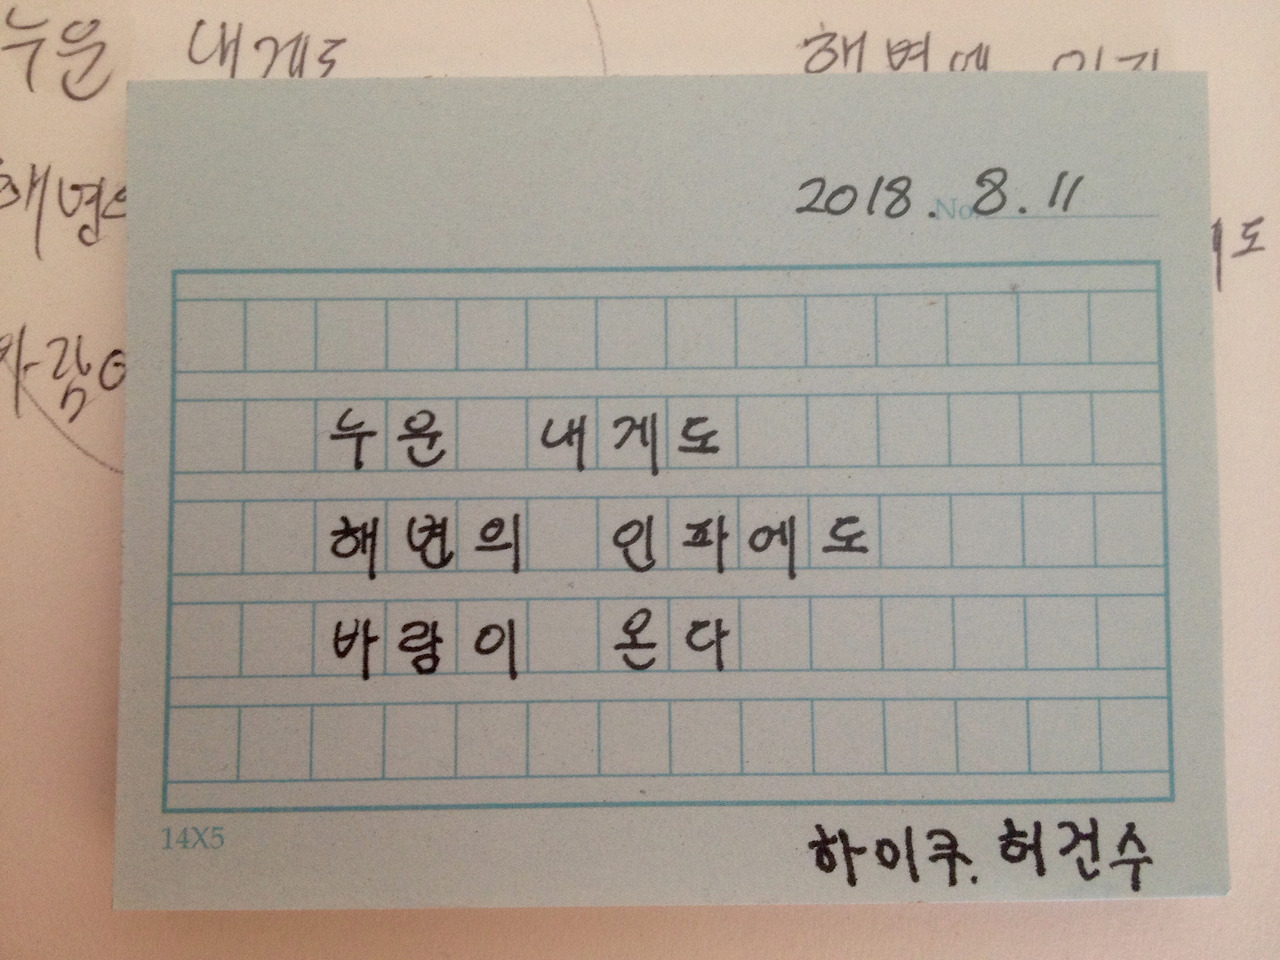 누운 내게도
해변에
2018. 8. 11
No.
누운 내게도
해변의 인파에도
바람이 온다
14X5
하이쿠. 허건수